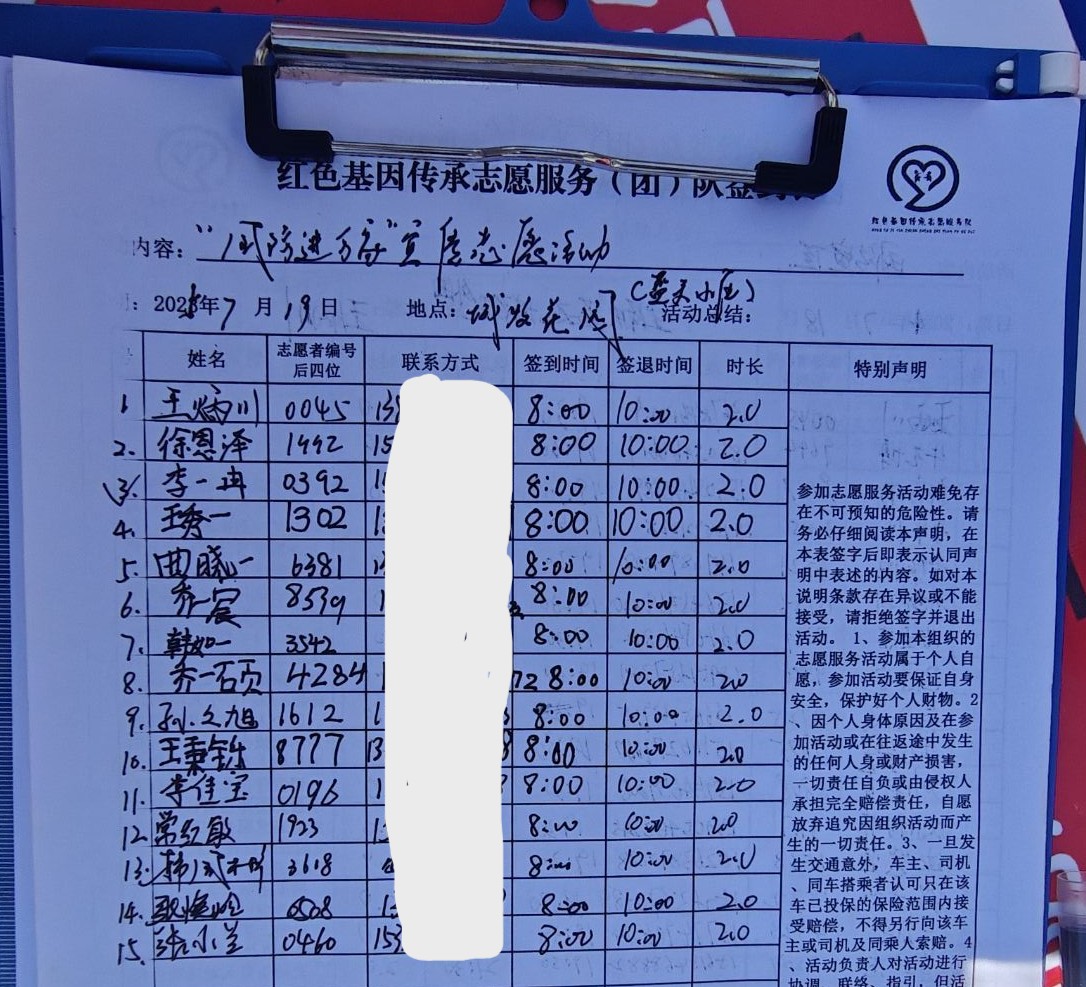 红色基因传承志愿服务（团）队签到
内容：“ 进万家”宣传志愿活动
（蓝天小区）
：2025年7月19日 地点： 活动总结：
姓名 志愿者编号后四位 联系方式 签到时间 签退时间 时长 特别声明
1 王炳川 0045 138 8:00 10:00 2.0
2. 徐恩泽 1442 15 8:00 10:00 2.0
3. 李一冉 0392 1 8:00 10:00 2.0
4. 王秀一 1302 1 8:00 10:00 2.0
5. 曲晓一 6381 8:00 10:00 2.0
6. 乔一宸 8539 1 8:00 10:00 2.0
7. 韩如一 3542 8:00 10:00 2.0
8. 乔一硕 4284 1 72 8:00 10:00 2.0
9. 孙久旭 1612 1 8:00 10:00 2.0
10. 王秉铄 8777 13 8 8:00 10:00 2.0
11. 李佳宝 0196 1 8:00 10:00 2.0
12. 常红敏 1923 1 8:00 10:00 2.0
13. 3618 8:00 10:00 2.0
14. 0508 1 8:00 10:00 2.0
15. 张小兰 0460 153 8:00 10:00 2.0
参加志愿服务活动难免存
在不可预知的危险性。请
务必仔细阅读本声明，在
本表签字后即表示认同声
明中表述的内容。如对本
说明条款存在异议或不能
接受，请拒绝签字并退出
活动。 1、参加本组织的
志愿服务活动属于个人自
愿，参加活动要保证自身
安全，保护好个人财物。2
、因个人身体原因及在参
加活动或在往返途中发生
的任何人身或财产损害，
一切责任自负或由侵权人
承担完全赔偿责任，自愿
放弃追究因组织活动而产
生的一切责任。3、一旦发
生交通意外，车主、司机
、同车搭乘者认可只在该
车已投保的保险范围内接
受赔偿，不得另行向该车
主或司机及同乘人索赔。4
、活动负责人对活动进行
协调、联络、指引，但活